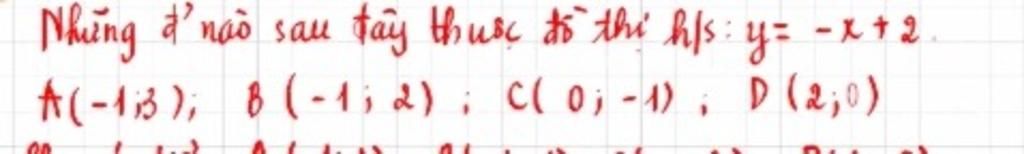 Những đ' nào sau đây thuộc đồ thị h/s: y = -x + 2.
A(-1;3); B(-1; 2); C(0; -1); D(2; 0)